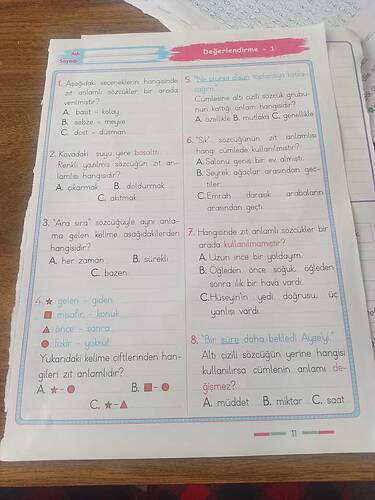 Adı
Soyadı
Değerlendirme - 1
1. Aşağıdaki seçeneklerin hangisinde
zıt anlamlı sözcükler bir arada
verilmiştir?
A. basit - kolay
B. sebze - meyve
C. dost - düşman
2. Kovadaki suyu yere boşalttı.
Renkli yazılmış sözcüğün zıt an-
lamlısı hangisidir?
A. çıkarmak B. doldurmak
C. akıtmak
3. "Ara sıra" sözcüğüyle aynı anla-
ma gelen kelime aşağıdakilerden
hangisidir?
A. her zaman B. sürekli
C. bazen
4. ★ gelen - giden
■ misafir - konuk
▲ önce - sonra
● fakir - yoksul
Yukarıdaki kelime çiftlerinden han-
gileri zıt anlamlıdır?
A. ★-● B. ■-●
C. ★-▲
5. "Ne olursa olsun toplantıya katıla-
cağım."
Cümlesine altı çizili sözcük grubu-
nun kattığı anlam hangisidir?
A. özellikle B. mutlaka C. genellikle
6. "Sık" sözcüğünün zıt anlamlısı
hangi cümlede kullanılmıştır?
A. Salonu geniş bir ev almıştı.
B. Seyrek ağaçlar arasından geç-
tiler.
C. Emrah daracık arabaların
arasından geçti.
7. Hangisinde zıt anlamlı sözcükler bir
arada kullanılmamıştır?
A. Uzun ince bir yoldayım.
B. Öğleden önce soğuk, öğleden
sonra ılık bir hava vardı.
C. Hüseyin'in yedi doğrusu, üç
yanlışı vardı.
8. "Bir süre daha bekledi Ayşeyi."
Altı çizili sözcüğün yerine hangisi
kullanılırsa cümlenin anlamı de-
ğişmez?
A. müddet B. miktar C. saat
11